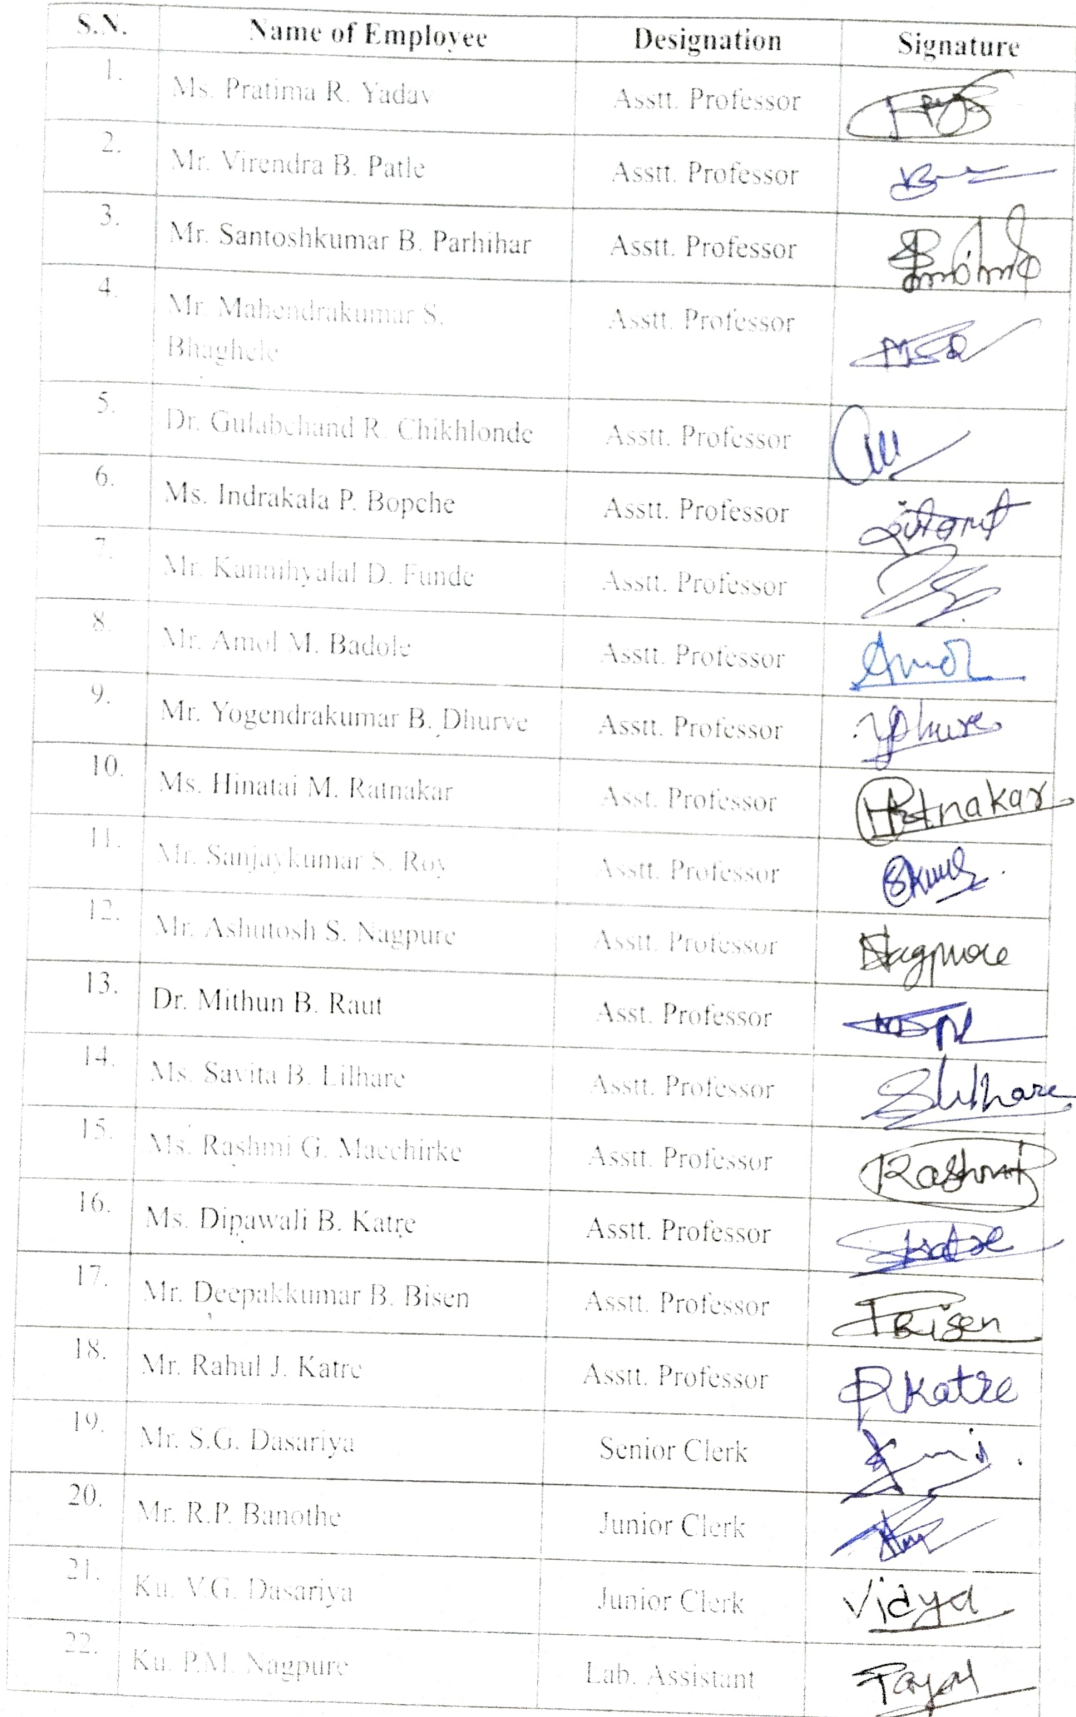 S.N. Name of Employee Designation Signature
1. Ms. Pratima R. Yadav Asstt. Professor
2. Mr. Virendra B. Patle Asstt. Professor
3. Mr. Santoshkumar B. Parhihar Asstt. Professor
4. Mr. Mahendrakumar S. Asstt. Professor
Bhaghele
5. Dr. Gulabchand R. Chikhlonde Asstt. Professor
6. Ms. Indrakala P. Bopche Asstt. Professor
7. Mr. Kannihyalal D. Funde Asstt. Professor
8. Mr. Amol M. Badole Asstt. Professor Amol
9. Mr. Yogendrakumar B. Dhurve Asstt. Professor
10. Ms. Hinatai M. Ratnakar Asst. Professor HRatnakar
11. Mr. Sanjaykumar S. Roy Asstt. Professor
12. Mr. Ashutosh S. Nagpure Asstt. Professor Nagpure
13. Dr. Mithun B. Raut Asst. Professor
14. Ms. Savita B. Lilhare Asstt. Professor SLilhare
15. Ms. Rashmi G. Macchirke Asstt. Professor Rashmi
16. Ms. Dipawali B. Katre Asstt. Professor Katre
17. Mr. Deepakkumar B. Bisen Asstt. Professor Bisen
18. Mr. Rahul J. Katre Asstt. Professor RKatre
19. Mr. S.G. Dasariya Senior Clerk
20. Mr. R.P. Banothe Junior Clerk
21. Ku. V.G. Dasariya Junior Clerk Vidya
22. Ku. P.M. Nagpure Lab. Assistant Payal